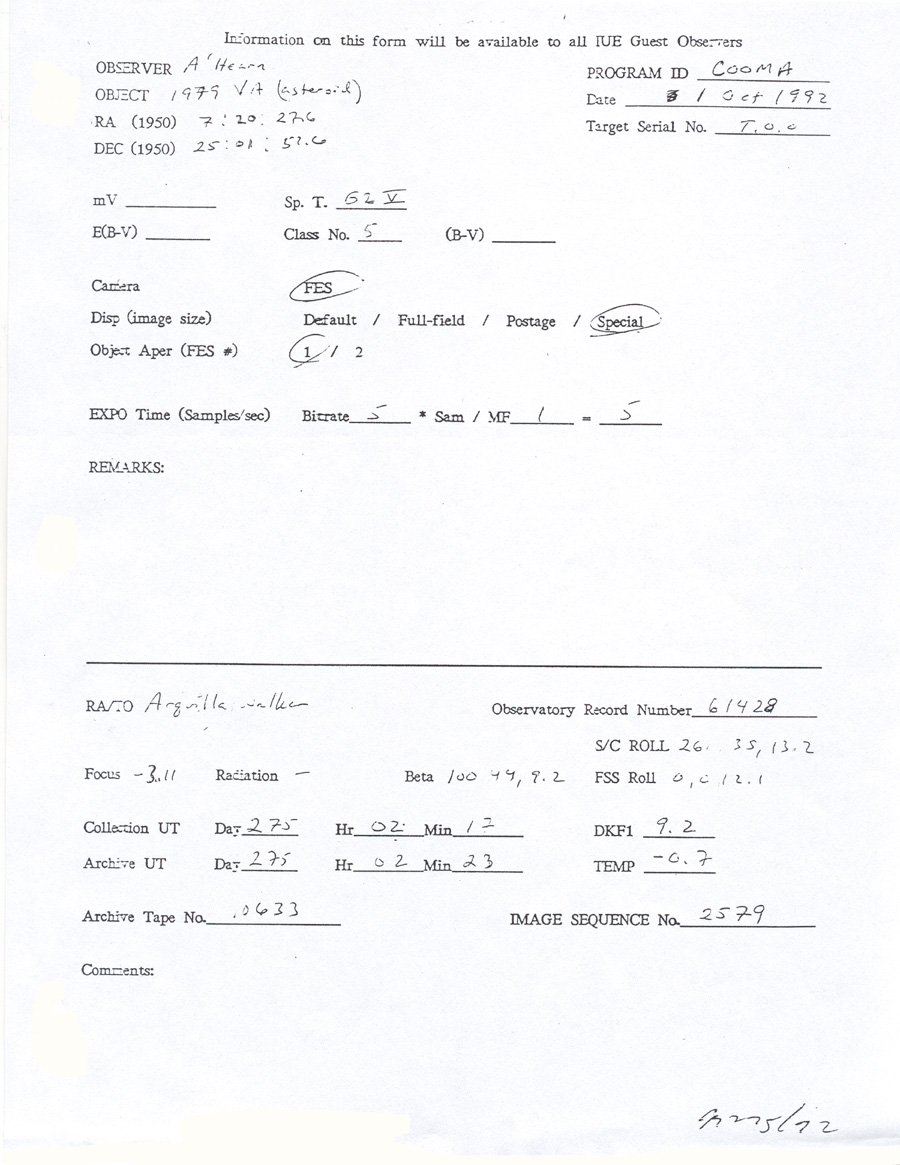 Information on this form will be available to all IUE Guest Observers
OBSERVER A'Hearn
PROGRAM ID COOMA
OBJECT 1979 VA (asteroid)
Date 1 Oct 1992
RA (1950) 7:20:27.6
Target Serial No. T.O.O
DEC (1950) 25:01:
mV Sp. T. G2 V
E(B-V) Class No. 5 (B-V)
Camera FES
Disp (image size) Default / Full-field / Postage / Special
Object Aper (FES #) 1 / 2
EXPO Time (Samples/sec) Bitrate 5 * Sam / MF 1 = 5
REMARKS:
RA/TO Arquilla Walker
Observatory Record Number 61428
S/C ROLL 26. 35, 13.2
Focus -3.11 Radiation — Beta 100 44, 9.2 FSS Roll 0, 0 12.1
Collection UT Day 275 Hr 02 Min 17 DKF1 9.2
Archive UT Day 275 Hr 02 Min 23 TEMP -0.7
Archive Tape No. 0633 IMAGE SEQUENCE No. 2579
Comments: